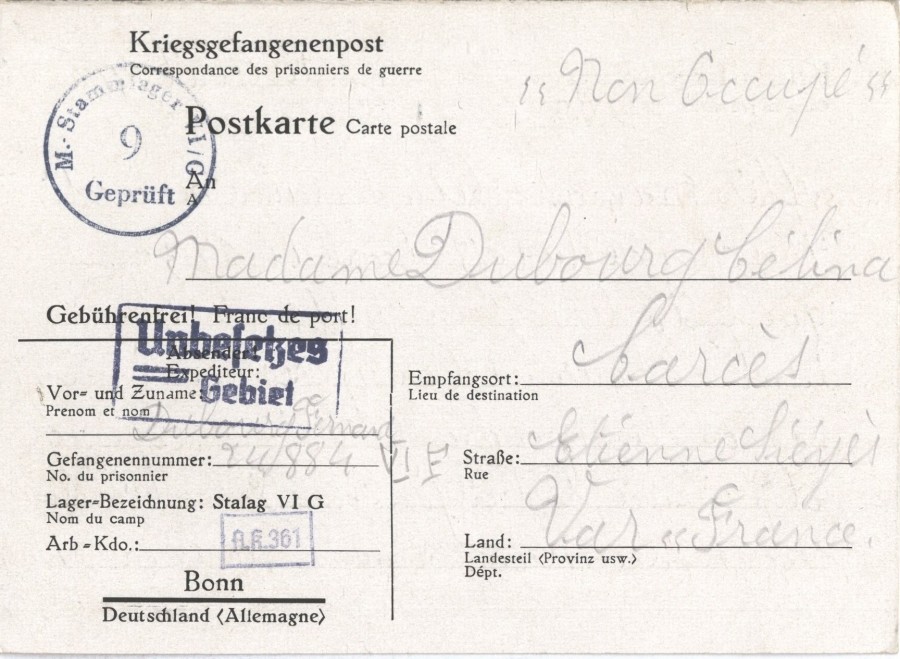 Kriegsgefangenenpost
Correspondance des prisonniers de guerre
"Non Occupé"
M.-Stammlager VI/G
9
Geprüft
Postkarte Carte postale
An
A
Madame Dubourg Célina
Gebührenfrei! Franc de port!
Unbesetzes
Gebiet
Absender:
Expediteur:
Vor= und Zuname:
Prenom et nom
Dubourg Fernand
Gefangenennummer: 24/884 VI F
No. du prisonnier
Lager=Bezeichnung: Stalag VI G
Nom du camp
Arb=Kdo.: A.K. 361
Bonn
Deutschland (Allemagne)
Empfangsort: Carcès
Lieu de destination
Straße: Etienne Siéyès
Rue
Land: Var "France.
Landesteil (Provinz usw.)
Dépt.